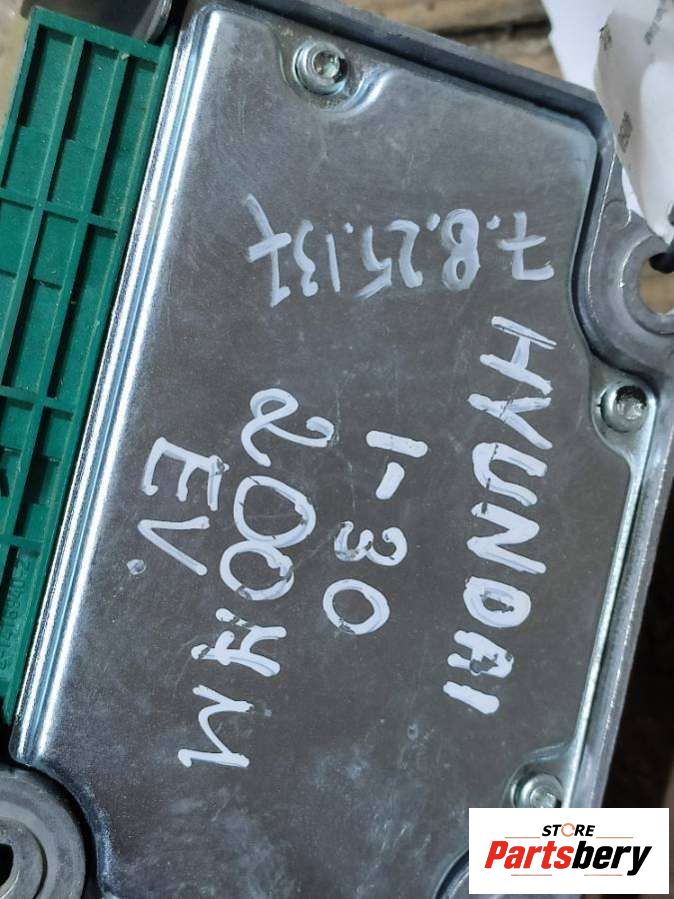 7.8.25.137
HYUNDAI
1-30
EV.
STORE
Partsbery